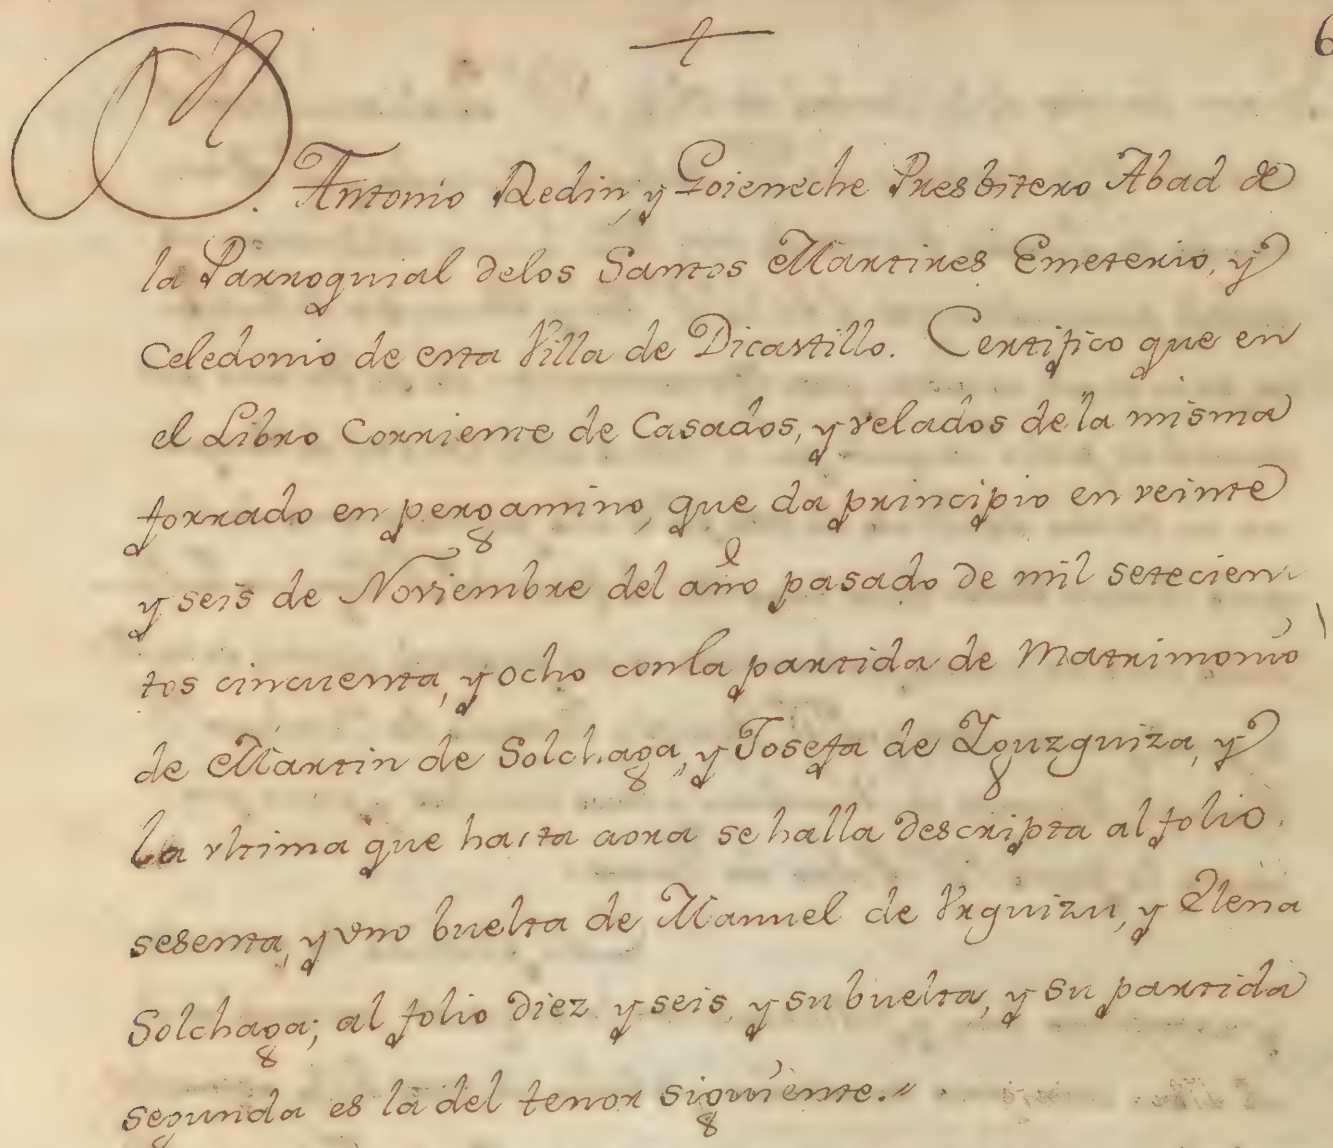 6
Dn. Antonio Redin, y Goieneche Presbitero Abad de
la Parroquial delos Santos Martires Emeterio, y
Celedonio de esta Villa de Dicastillo. Certifico que en
el Libro Corriente de Casados, y velados de la misma
forrado en pergamino, que da principio en veinte
y seis de Noviembre del año pasado de mil setecien
tos cincuenta, y ocho conla partida de Matrimonio
de Martin de Solchaga, y Josefa de Zguzguiza, y
La vltima que hasta aora se halla descripta al folio
sesenta, y vno buelta de Manuel de Vrquizu, y Elena
Solchaga; al folio diez y seis, y su buelta, y su partida
segunda es la del tenor siguiente.